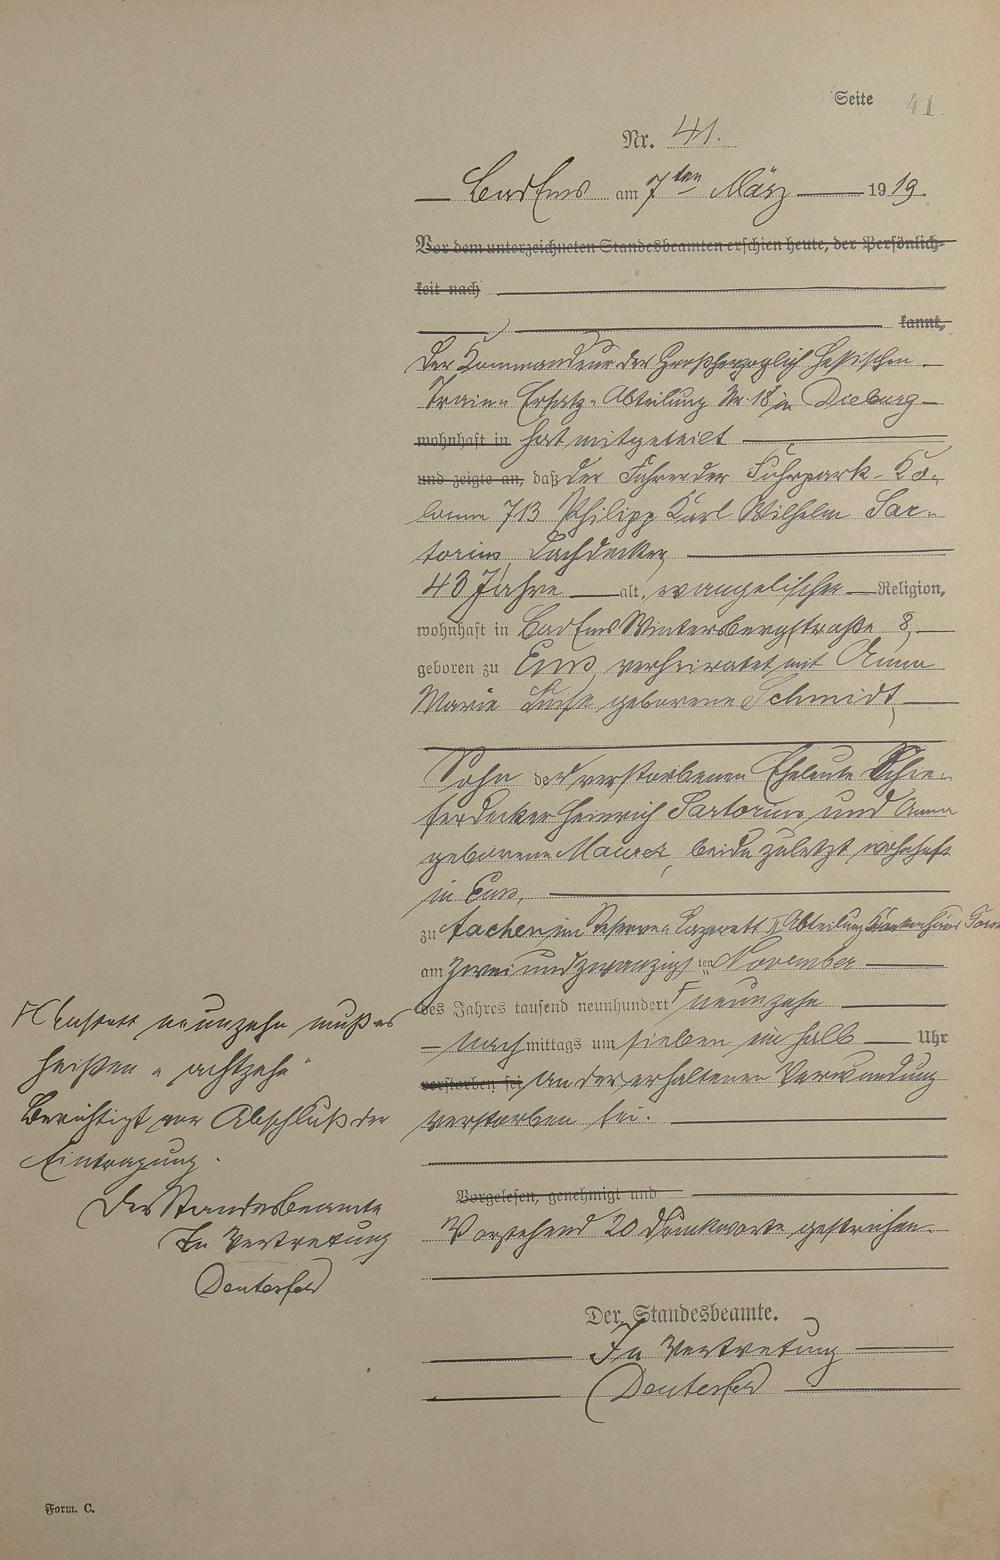 Seite 41
Nr. 41.
Bad Ems am 7ten März 1919.
Vor dem unterzeichneten Standesbeamten erschien heute, der Persönlich-
keit nach
kannt,
Der Kommandeur der Großherzoglich Hessischen
Train-Ersatz-Abteilung Nr. 18 in Dieburg
wohnhaft in hat mitgeteilt
und zeigte an, daß der Führer der Fuhrpark-Ko-
lonne 713 Philipp Karl Wilhelm Sar-
torius, Dachdecker,
43 Jahre alt, evangelischer Religion,
wohnhaft in Bad Ems Wintersbergstraße 8,
geboren zu Ems, verheiratet mit Anna
Marie Luise geborene Schmidt,
Sohn der verstorbenen Eheleute Schie-
ferdecker Heinrich Sartorius und Anna
geborene Maurer, beide zuletzt wohnhaft
in Ems,
zu Aachen im Reserve-Lazarett II Abteilung Krankenhaus
am zwei und zwanzigsten November
des Jahres tausend neunhundert neunzehn
Nachmittags um sieben ein halb Uhr
verstorben sei an der erhaltenen Verwundung
verstorben sei.
Vorgelesen, genehmigt und
Vorstehend 20 Druckworte gestrichen.
Der Standesbeamte.
In Vertretung
Deutesfeld
Anstatt neunzehn muß es
heißen "achtzehn"
Berichtigt vor Abschluß der
Eintragung.
Der Standesbeamte
In Vertretung
Deutesfeld
Form. C.